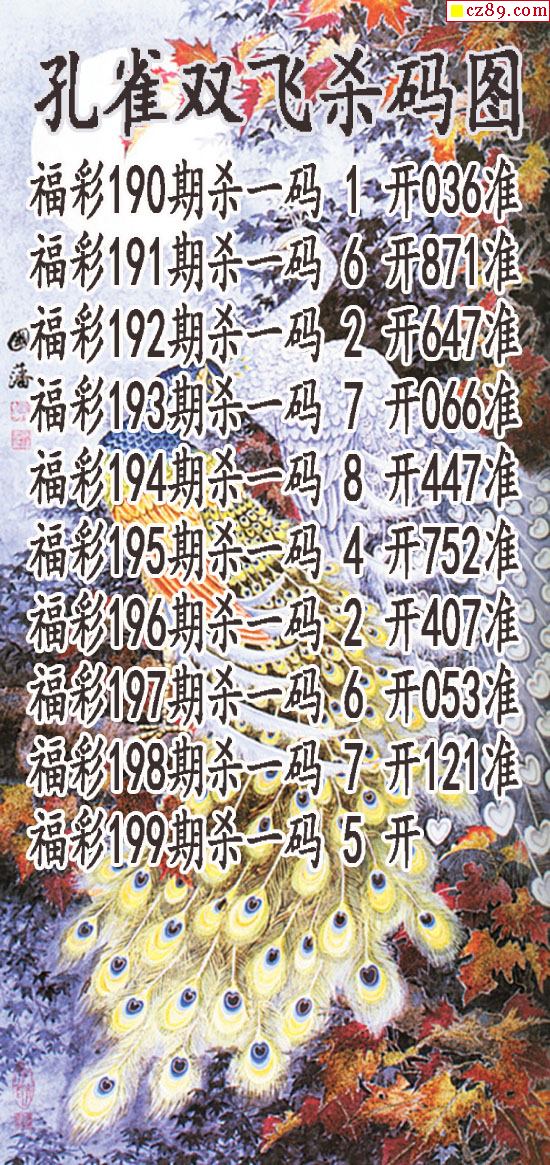 cz89.com
孔雀双飞杀码图
福彩190期杀一码 1 开036准
福彩191期杀一码 6 开871准
福彩192期杀一码 2 开647准
福彩193期杀一码 7 开066准
福彩194期杀一码 8 开447准
福彩195期杀一码 4 开752准
福彩196期杀一码 2 开407准
福彩197期杀一码 6 开053准
福彩198期杀一码 7 开121准
福彩199期杀一码 5 开
國藩